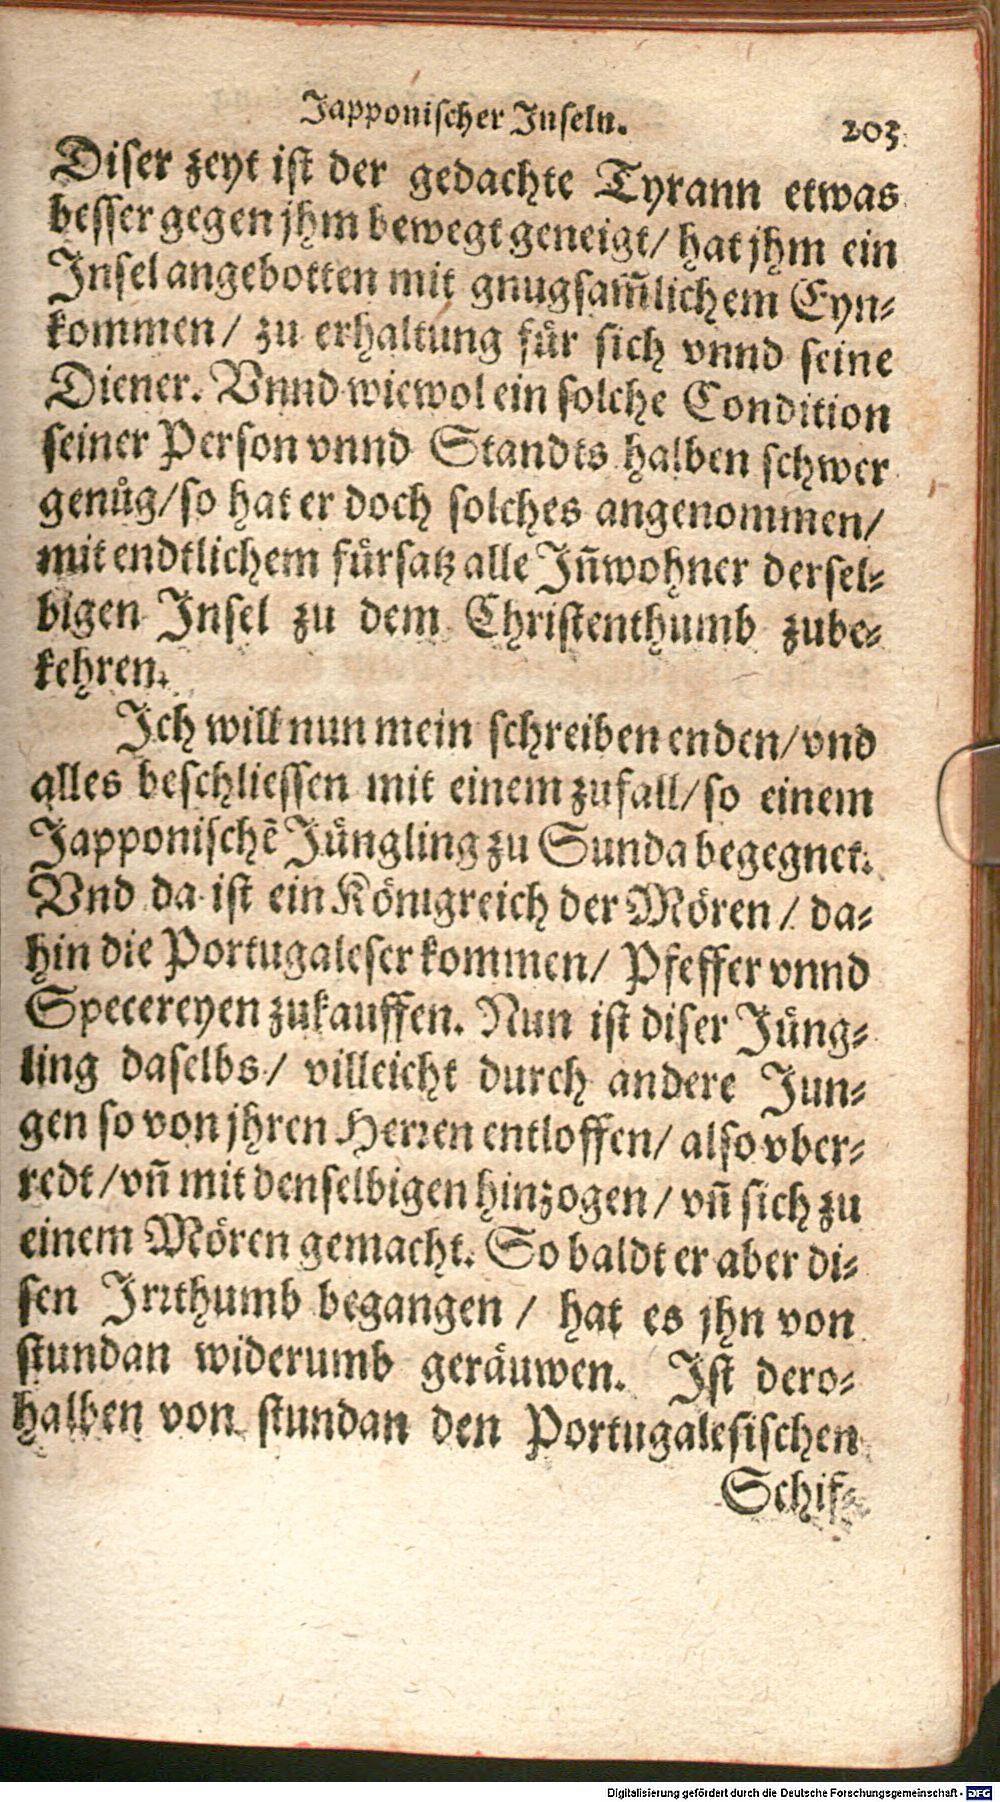 Japponischer Inseln. 203
Diser zeyt ist der gedachte Tyrann etwas
besser gegen jhm bewegt geneigt/ hat jhm ein
Insel angebotten mit gnugsam̃lichem Eyn-
kommen/ zu erhaltung für sich vnnd seine
Diener. Vnnd wiewol ein solche Condition
seiner Person vnnd Standts halben schwer
genůg/ so hat er doch solches angenommen/
mit endtlichem fürsatz alle Jñwohner dersel-
bigen Insel zu dem Christenthumb zube-
kehren.
Ich will nun mein schreiben enden/ vnd
alles beschliessen mit einem zufall/ so einem
Japponischẽ Jüngling zu Sunda begegnet.
Vnd da ist ein Königreich der Mören/ da-
hin die Portugaleser kommen/ Pfeffer vnnd
Specereyen zukauffen. Nun ist diser Jüng-
ling daselbs/ villeicht durch andere Jun-
gen so von jhren Herren entloffen/ also vber-
redt/ vñ mit denselbigen hinzogen/ vñ sich zu
einem Mören gemacht. So baldt er aber di-
sen Irrthumb begangen/ hat es jhn von
stundan widerumb geräuwen. Ist dero-
halben von stundan den Portugalesischen
Schif-
Digitalisierung gefördert durch die Deutsche Forschungsgemeinschaft - DFG